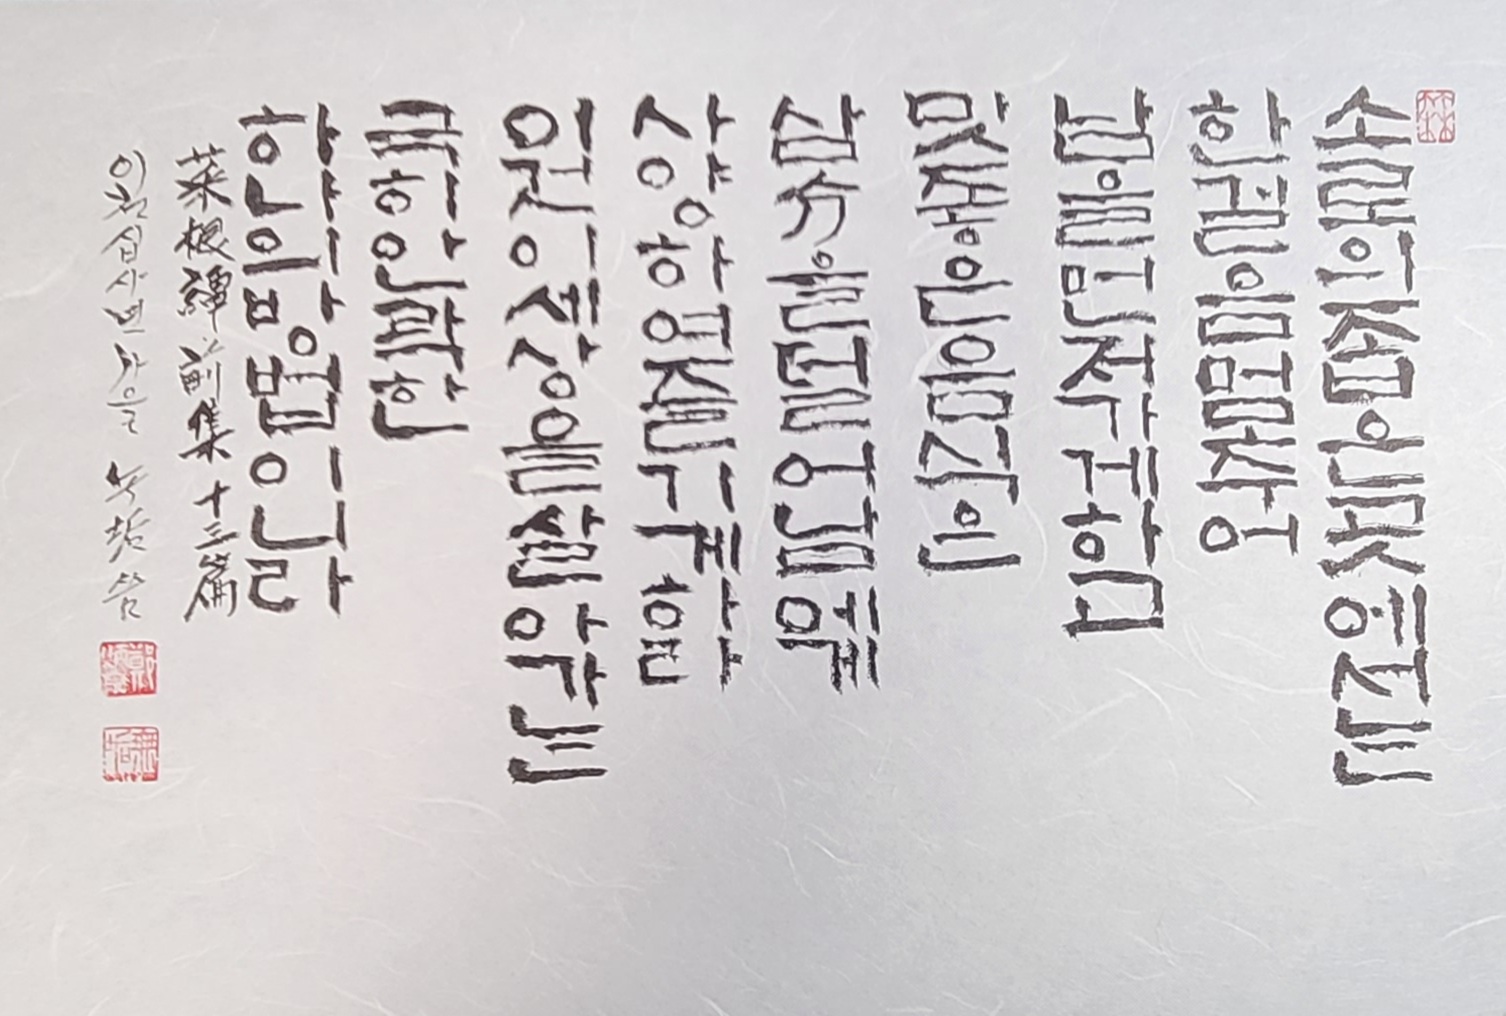 한걸음멈추어
남을먼저가게하고
맛좋은음식은
삼분을덜어남에게
사양하여즐기게하라
이것이세상을살아가는
극히안락한
하나의방법이니라
菜根譚前集十三篇
이천십사년가을 씀